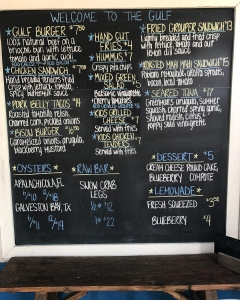 WELCOME TO THE GULF
GULF BURGER
100% natural beef on a
brioche bun with lettuce
tomato and garlic aioli
CHICKEN SANDWICH
Hand breaded tenders fried
crisp with lettuce, tomato,
spicy buttermilk sauce
PORK BELLY TACOS $14
Roasted tomatillo relish,
charred corn, pickled onions
BISON BURGER $16
Caramelized onions, arugula,
blackberry mustard
HAND CUT
FRIES $4
HUMMUS $7
Crispy pita chips
MIXED GREEN
SALAD
Balsamic vinaigrette
KIDS GRILLED
CHEESE
Served with fries
KIDS CHICKEN
TENDERS
Served with fries
FRIED GROUPER SANDWICH $13
Lightly breaded and fried crisp
with lettuce, tomato and our
tartar sauce
ROASTED MAHI MAHI SANDWICH $15
bacon, local tomato
SEARED TUNA $17
Greenhouse arugula, summer
squash, cherry, spring garlic,
shaved radish, citrus +
poppy seed vinaigrette
OYSTERS
APALACHICOLA, FL
6/$10 12/$18
GALVESTON BAY, TX
6/$11 12/$19
RAW BAR
SNOW CRAB
LEGS
1/2# $12
1# $22
DESSERT $5
CREAM CHEESE POUND CAKE,
BLUEBERRY COMPOTE
LEMONADE
FRESH SQUEEZED $3
BLUEBERRY $4